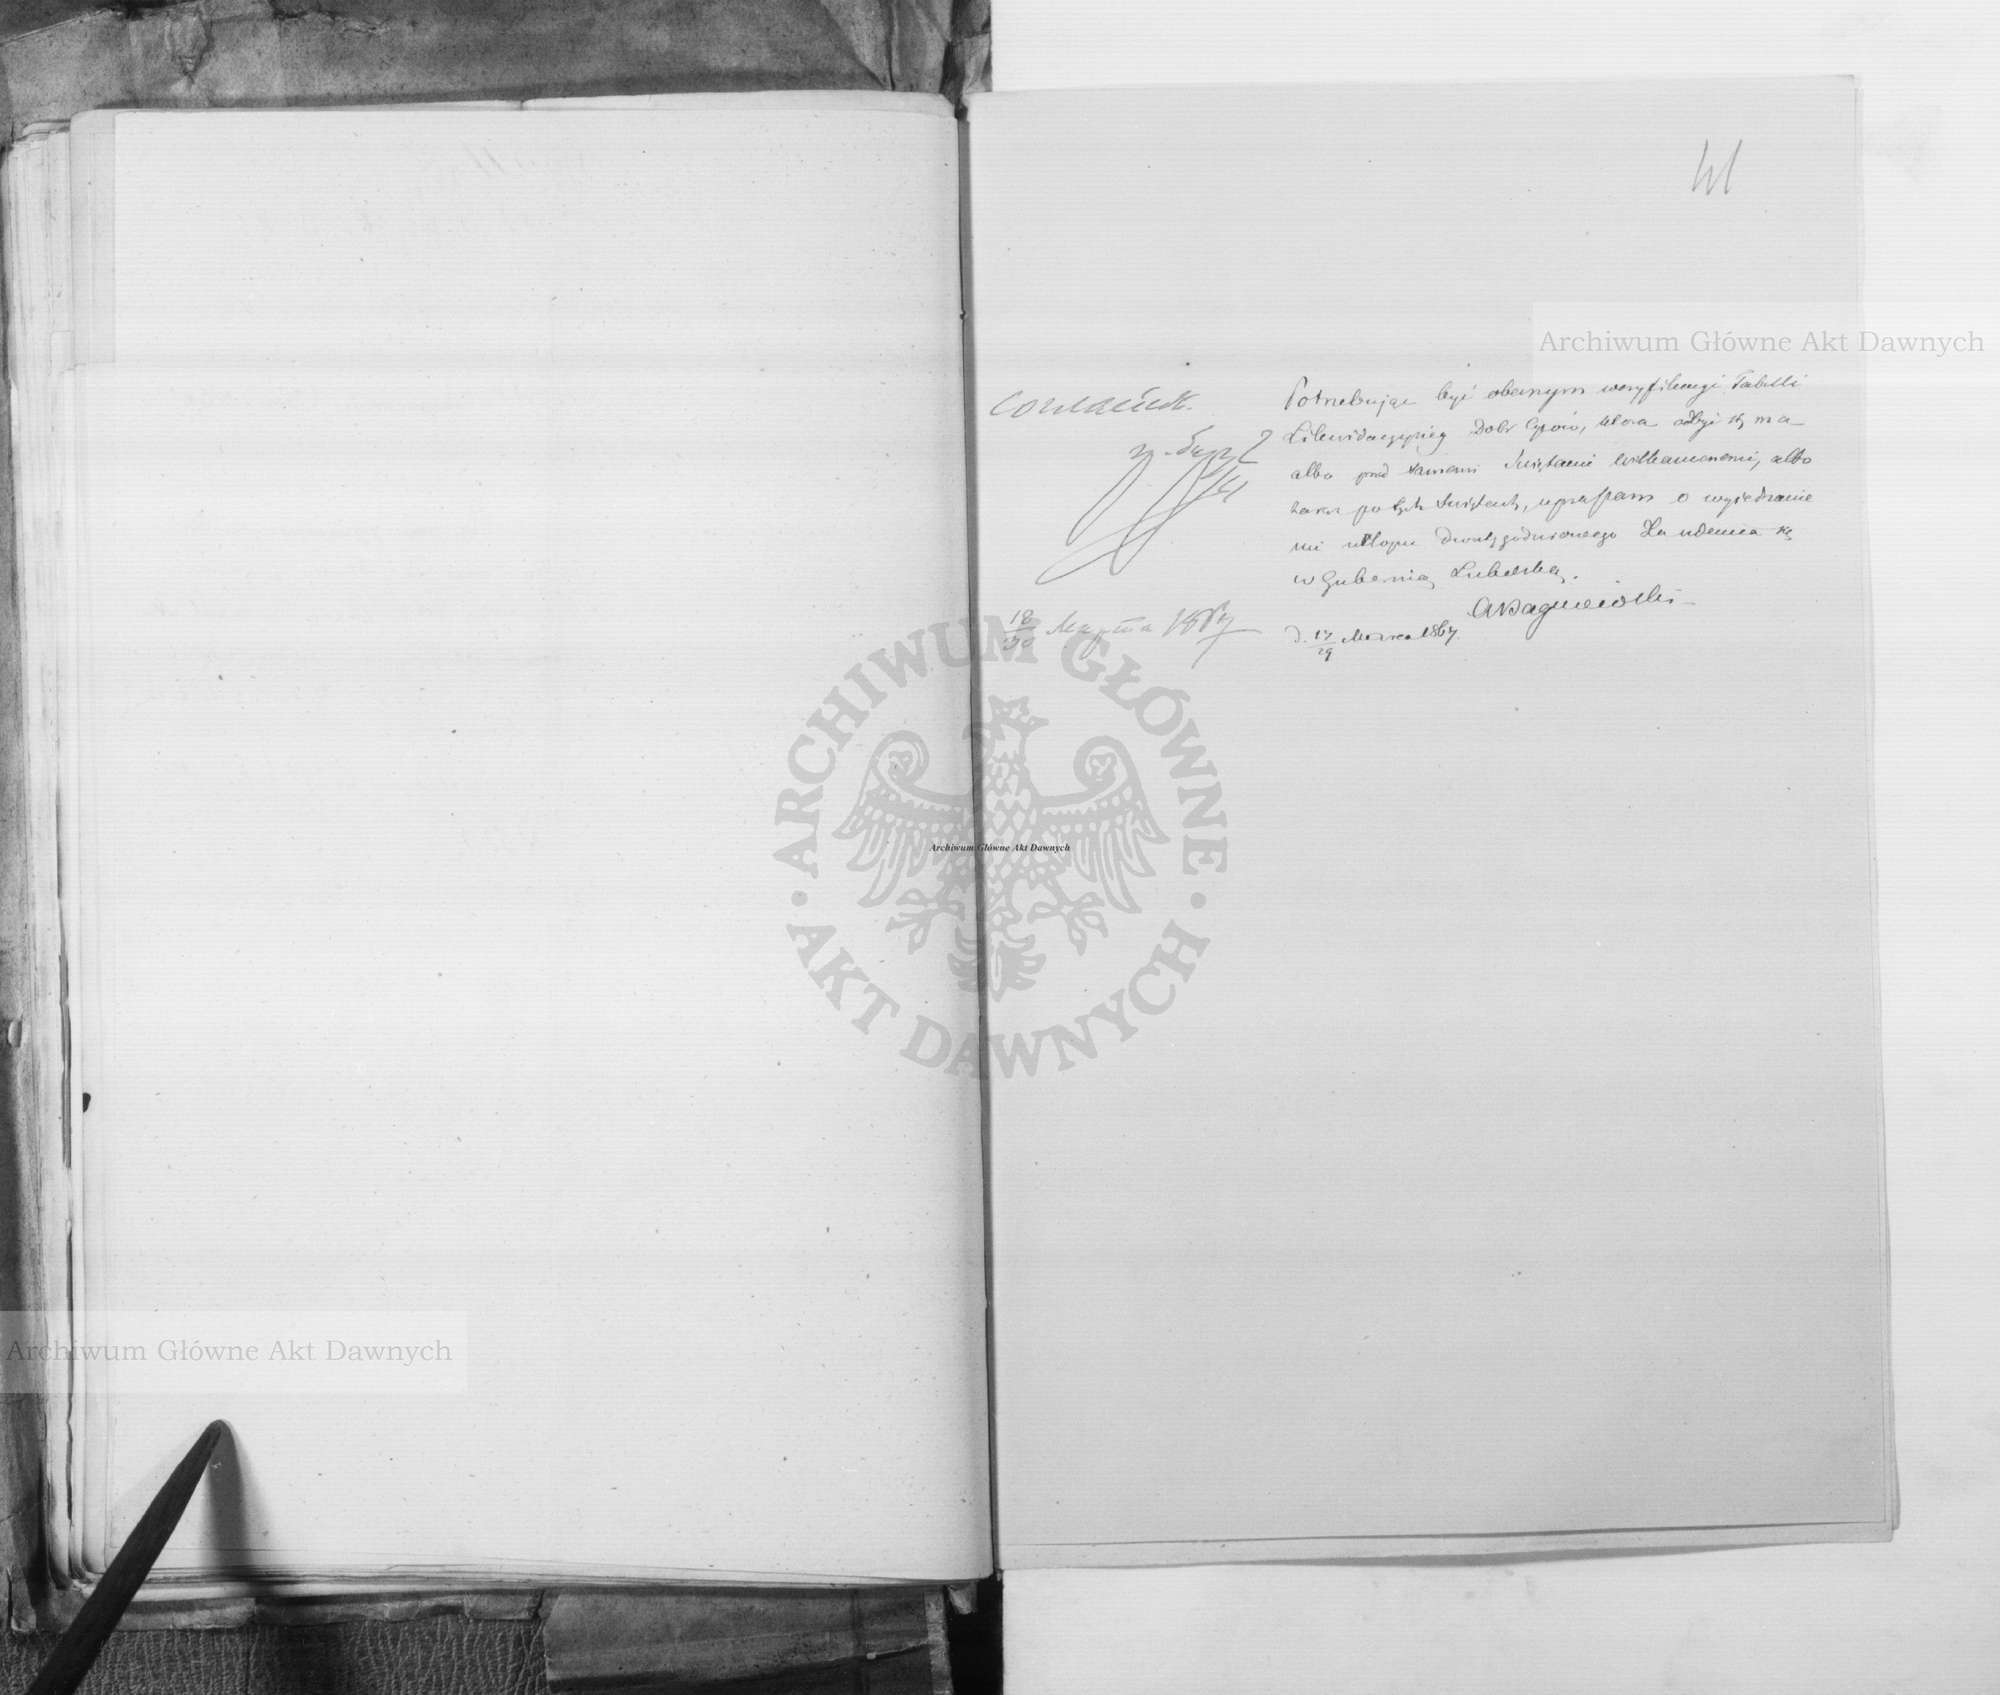 41
Potrzebując być obecnym weryfikacyi Tabelli
Likwidacyjnej Dóbr Cyców, która odbyć się ma
albo przed samemi Świętami Wielkanocnemi, albo
zaraz po tych Świętach, upraszam o wyjednanie
mi urlopu dwutygodniowego dla udania się
w Gubernią Lubelską.
d. 17/29 Marca 1867.
18/30 Марта 1867
Archiwum Główne Akt Dawnych
Archiwum Główne Akt Dawnych
Archiwum Główne Akt Dawnych
ARCHIWUM GŁÓWNE AKT DAWNYCH